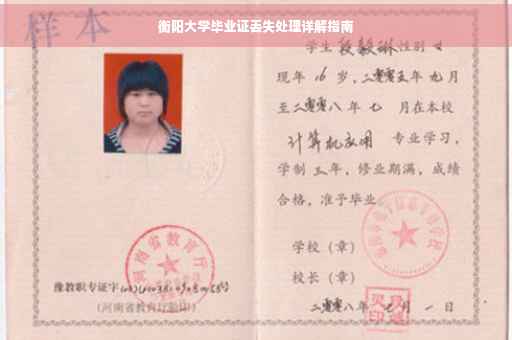 衡阳大学毕业证丢失处理详解指南
样本
学生段毅琳性别女
现年16岁,二零零五年九月
至二零零八年七月在本校
计算机应用 专业学习,
学制三年,修业期满,成绩
合格,准予毕业
学校(章)
校长(章)
二零零八年七月一日
河南省教育厅
豫教职专证字
(河南省教育厅验印)